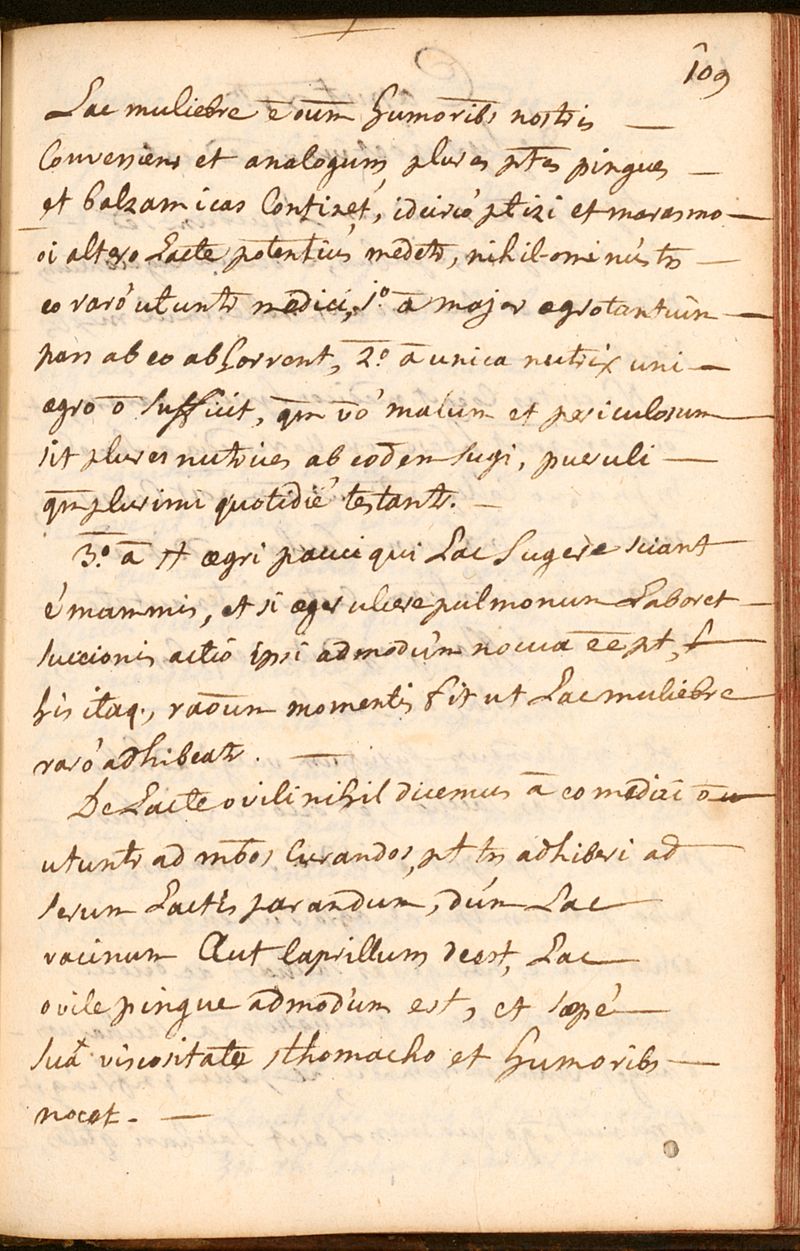 109
Lac muliebre ē oūm humorib⁹ nostris —
Conveniens et analogum, plures ptēs pingues —
et balzamicas Continet, idcircó ptizi et marasmo —
oi altero Lacte potentiús medetr, nihil-ominús tn —
eo raró utuntr medici, 1º ā major ægrotantum —
pars ab eo abhorrent, 2º ā unica nutrix uni —
ægro ō sufficit, qm vó malum et periculosum —
sit plures nutrices ab eodem sugi, pueruli —
qm plurimi quotidié testantr. —
3º ā st ægri pauci qui Lac sugere sciant
é mammis, et si æger ulcere pulmonum Laboret —
succionis actio ipsi admodúm nocua ēe pt,
his itaq., raōum momentis fit ut Lac muliebre
raró adhibeatr. —
De Lacte ovili nihil dicemus ā eo medici ō
utuntr ad mbos Curandos, pt tn adhiberi ad
serum Lactis parandum, dúm Lac
vacinum Aut Caprillum deest, Lac
ovile pingue admodum est, et sæpé —
suā viscositate sthomacho et humorib⁹ —
nocet. —